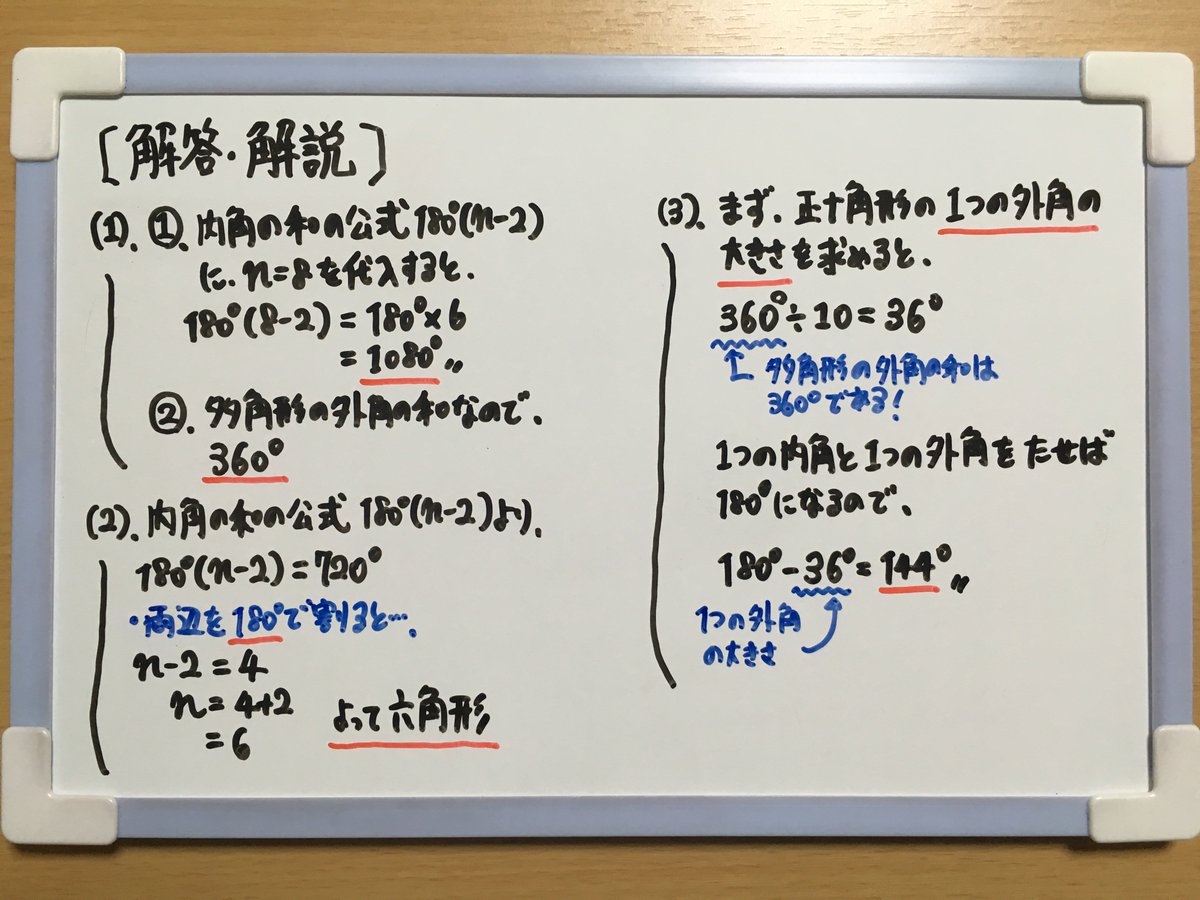 [解答・解説]
(1). ①. 内角の和の公式 180°(n-2)
に、n=8を代入すると、
180°(8-2) = 180°×6
= 1080°〃
②. 多角形の外角の和なので、
360°
(2). 内角の和の公式 180°(n-2)より、
180°(n-2) = 720°
・両辺を180°で割ると…、
n-2 = 4
n = 4+2
= 6
よって六角形
(3). まず、正十角形の1つの外角の
大きさを求めると、
360°÷10 = 36°
↑ 多角形の外角の和は
360°である!
1つの内角と1つの外角をたせば
180°になるので、
180°-36° = 144°〃
1つの外角
の大きさ